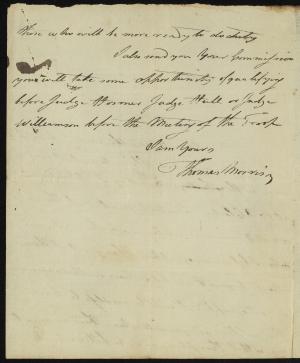 those who will be more ready to do duty
I also send you your Commission
you will take some opportunity of qualifying
before Judge Hosmer Judge Hall or Judge
Williamson before the Meeting of the Troop
I am Yours
Thomas Morris